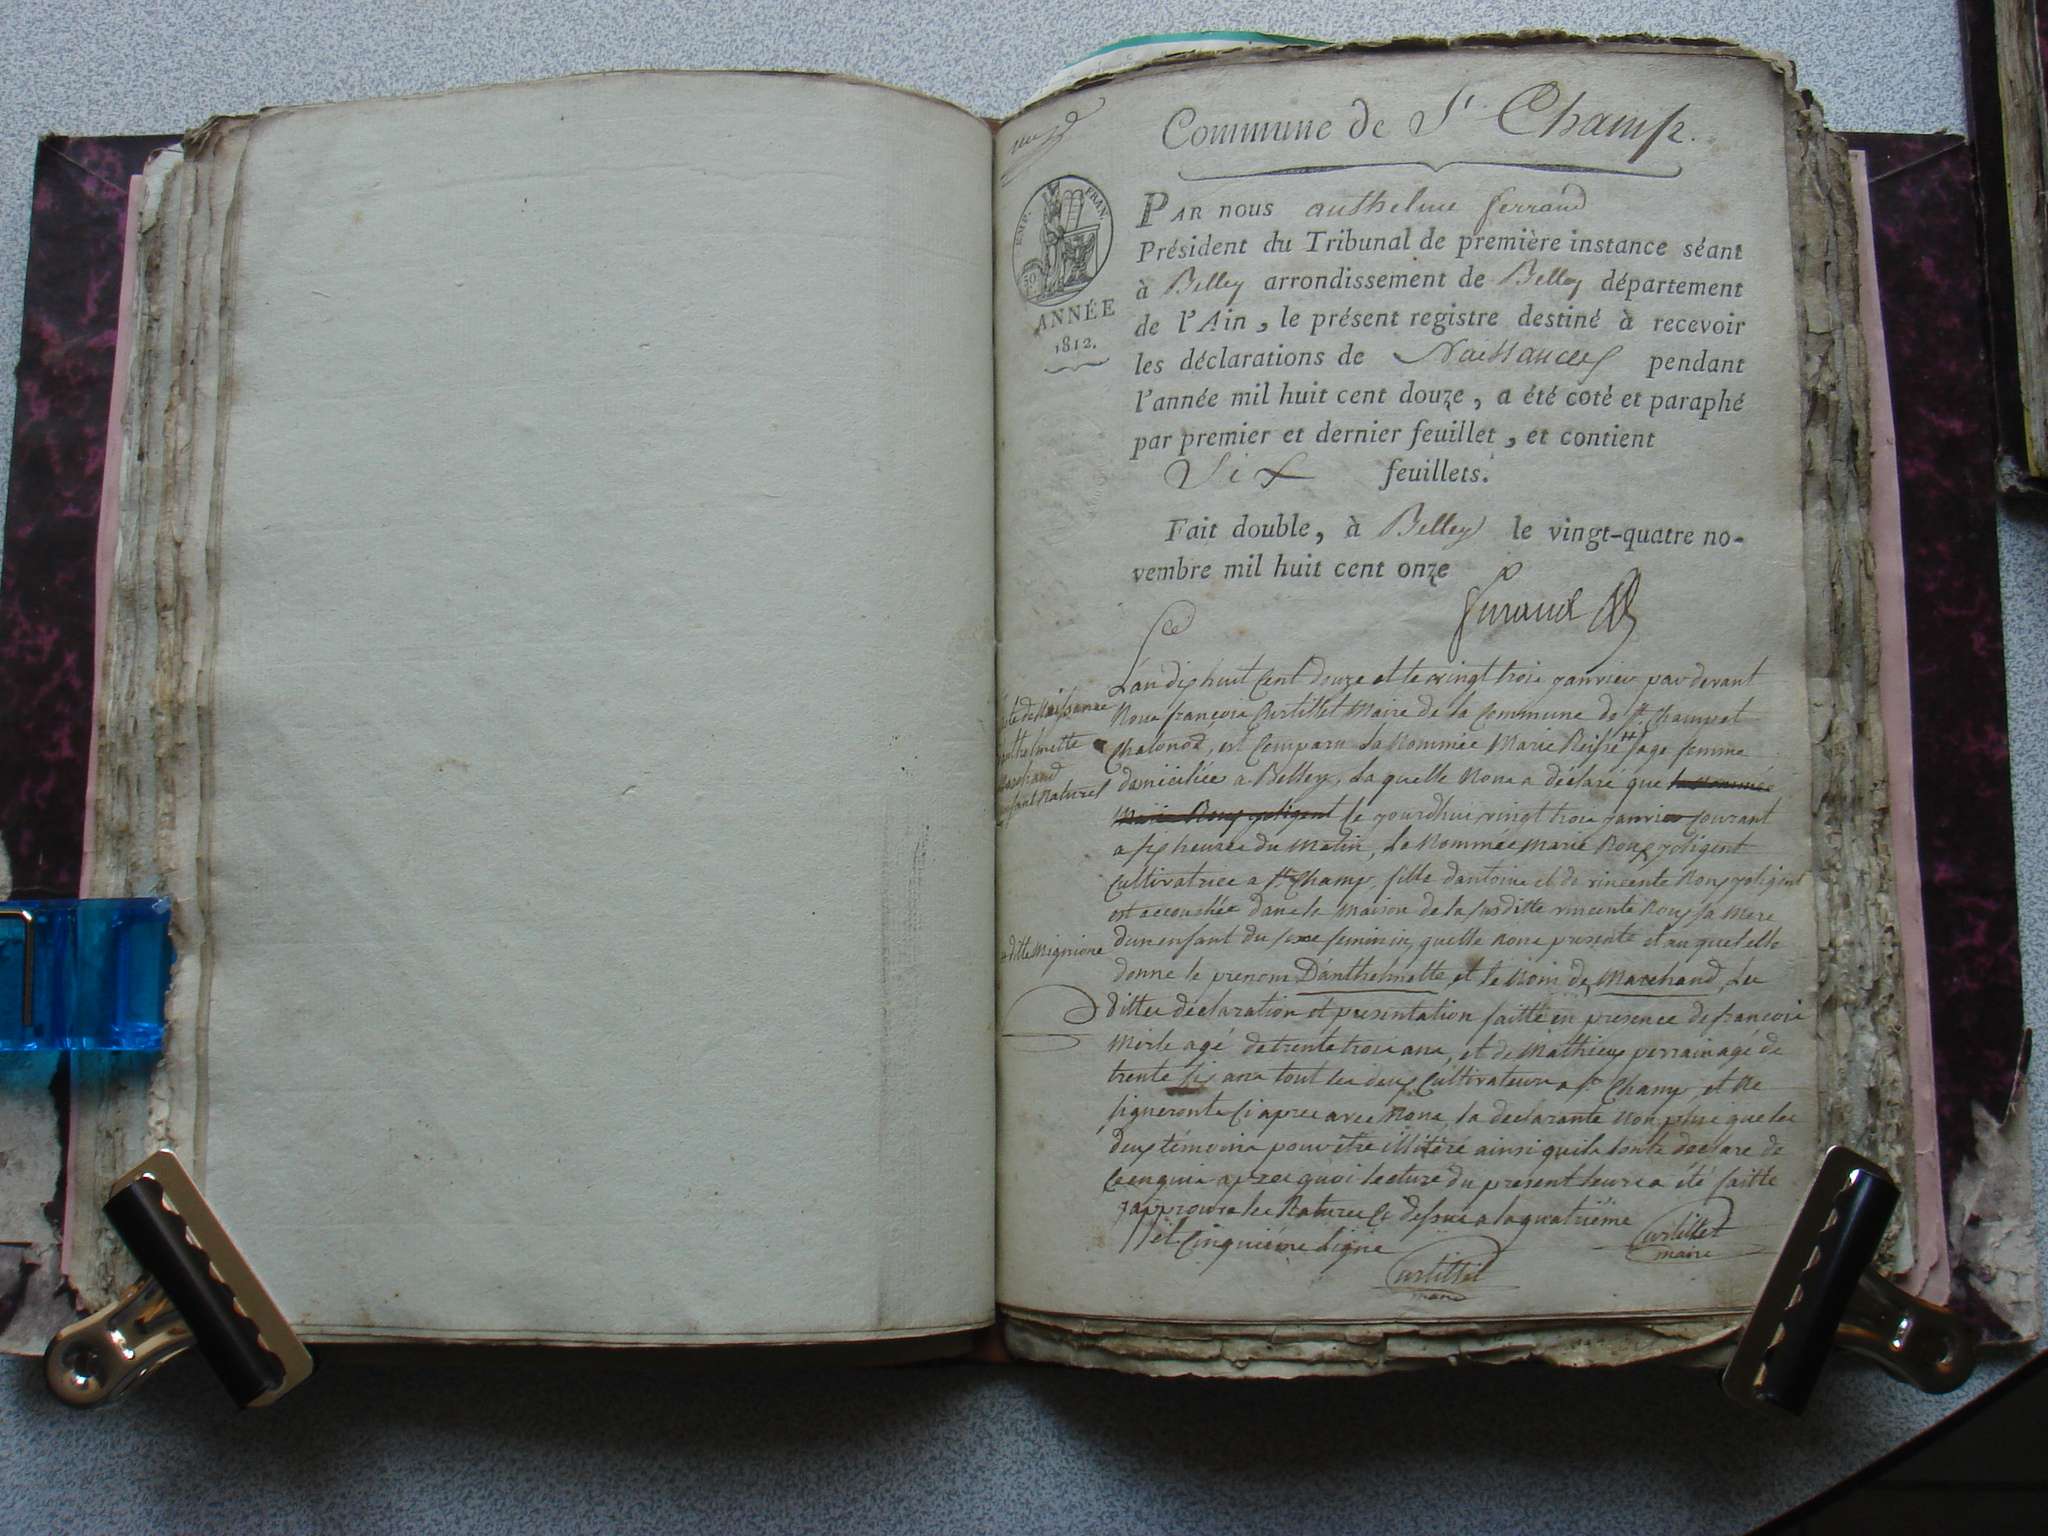 Commune de St. Champ.
EMP. FRAN.
ANNÉE
1812.
PAR nous anthelme ferrand
Président du Tribunal de première instance séant
à Belley arrondissement de Belley département
de l'Ain, le présent registre destiné à recevoir
les déclarations de Naissances pendant
l'année mil huit cent douze, a été coté et paraphé
par premier et dernier feuillet, et contient
Six feuillets.
Fait double, à Belley le vingt-quatre no-
vembre mil huit cent onze
ferrand
acte de Naissance
danthelmette
Marchand
enfant Naturel
L'an dix huit Cent Douze et le vingt trois janvier par devant
Nous françois Curtillet Maire de la Commune de St. Champ et
Chatonod, est Comparu La Nommée Marie sage femme
domiciliée a Belley, La quelle Nous a déclaré que la Nommée
Marie Roux Ce jourdhui vingt trois janvier courant
a six heures du Matin, La Nommée Marie Roux
Cultivatrice a St. Champ, fille dantoine et de vincente Roux
est accouchée dans la Maison de la susditte vincente Roux sa Mere
+ ditte Mignione
dun enfant du sexe feminin, quelle Nous presente et au quel elle
donne le prenom Danthelmette, et le Nom de Marchand, Les
dittes declaration et presentation faitte en presence de francois
Merle agé de trente trois ans, et de Mathieu perrain agé de
trente six ans tout les deux Cultivateurs a St. Champ, et Ne
signeronts Ci apres avec Nous, la declarante Non plus que les
deux témoins pour être illitéré ainsi quils lonts declare de
ce enquis apres quoi lecture du present leurs a été faitte
japprouve les Ratures Ci dessus a la quatrième
et Cinquième Ligne
Curtillet
maire
Curtillet
maire